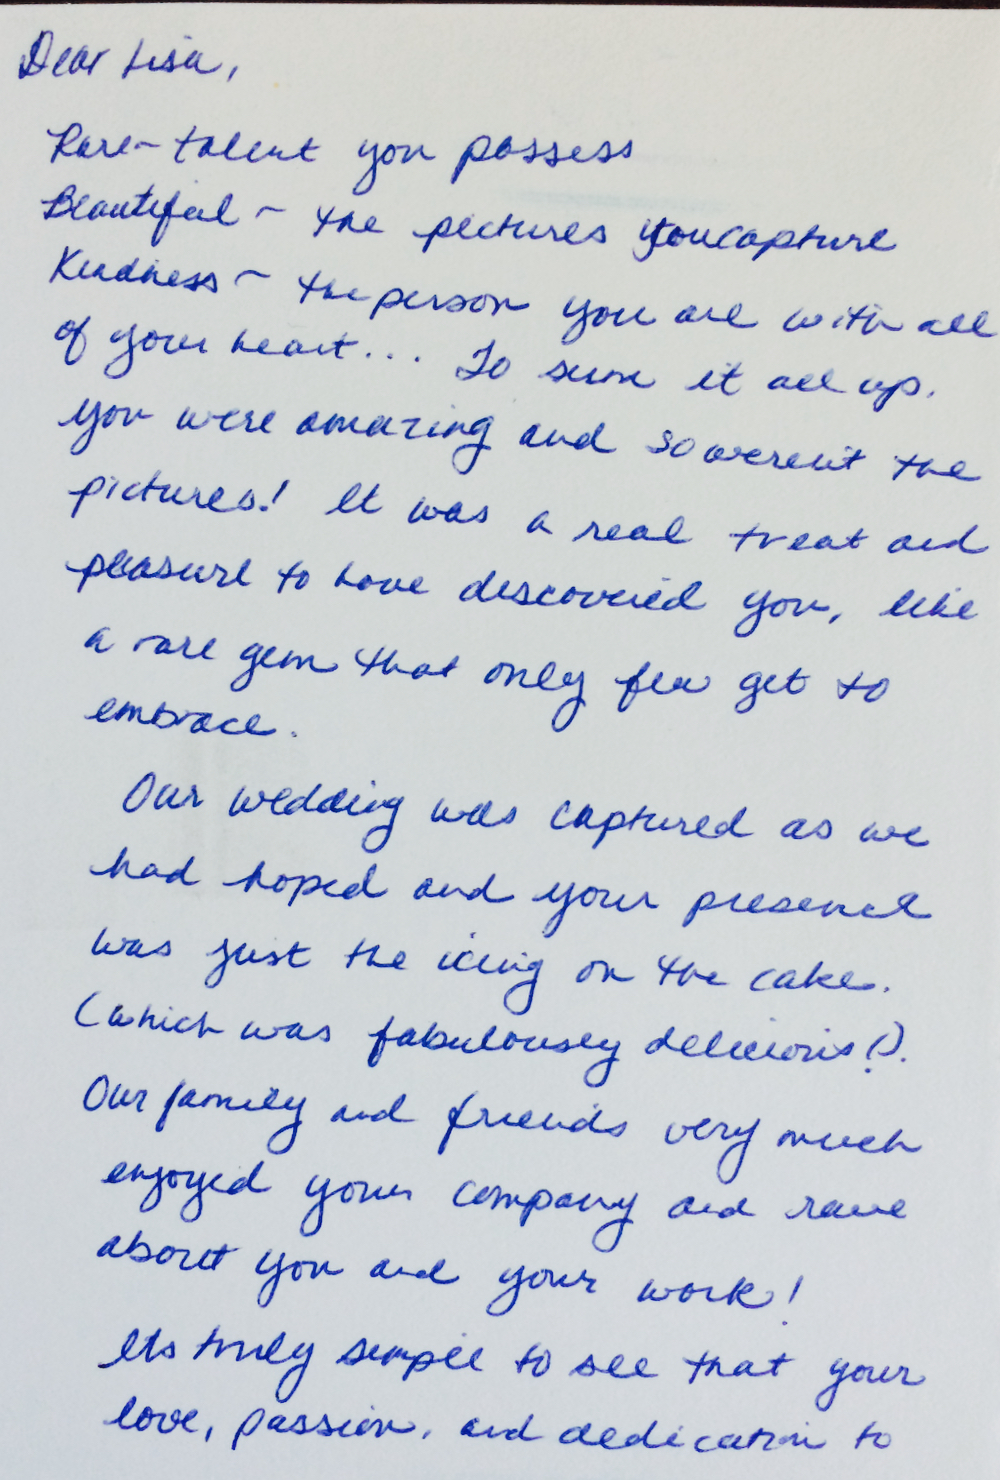 Dear Lisa,
Rare - talent you possess
Beautiful - the pictures you capture
Kindness - the person you are with all
of your heart... To sum it all up.
you were amazing and so weren't the
pictures! It was a real treat and
pleasure to have discovered you, like
a rare gem that only few get to
embrace.
Our wedding was captured as we
had hoped and your presence
was just the icing on the cake.
(which was fabulously delicious!).
Our family and friends very much
enjoyed your company and rave
about you and your work!
Its truly simple to see that your
love, passion, and dedication to